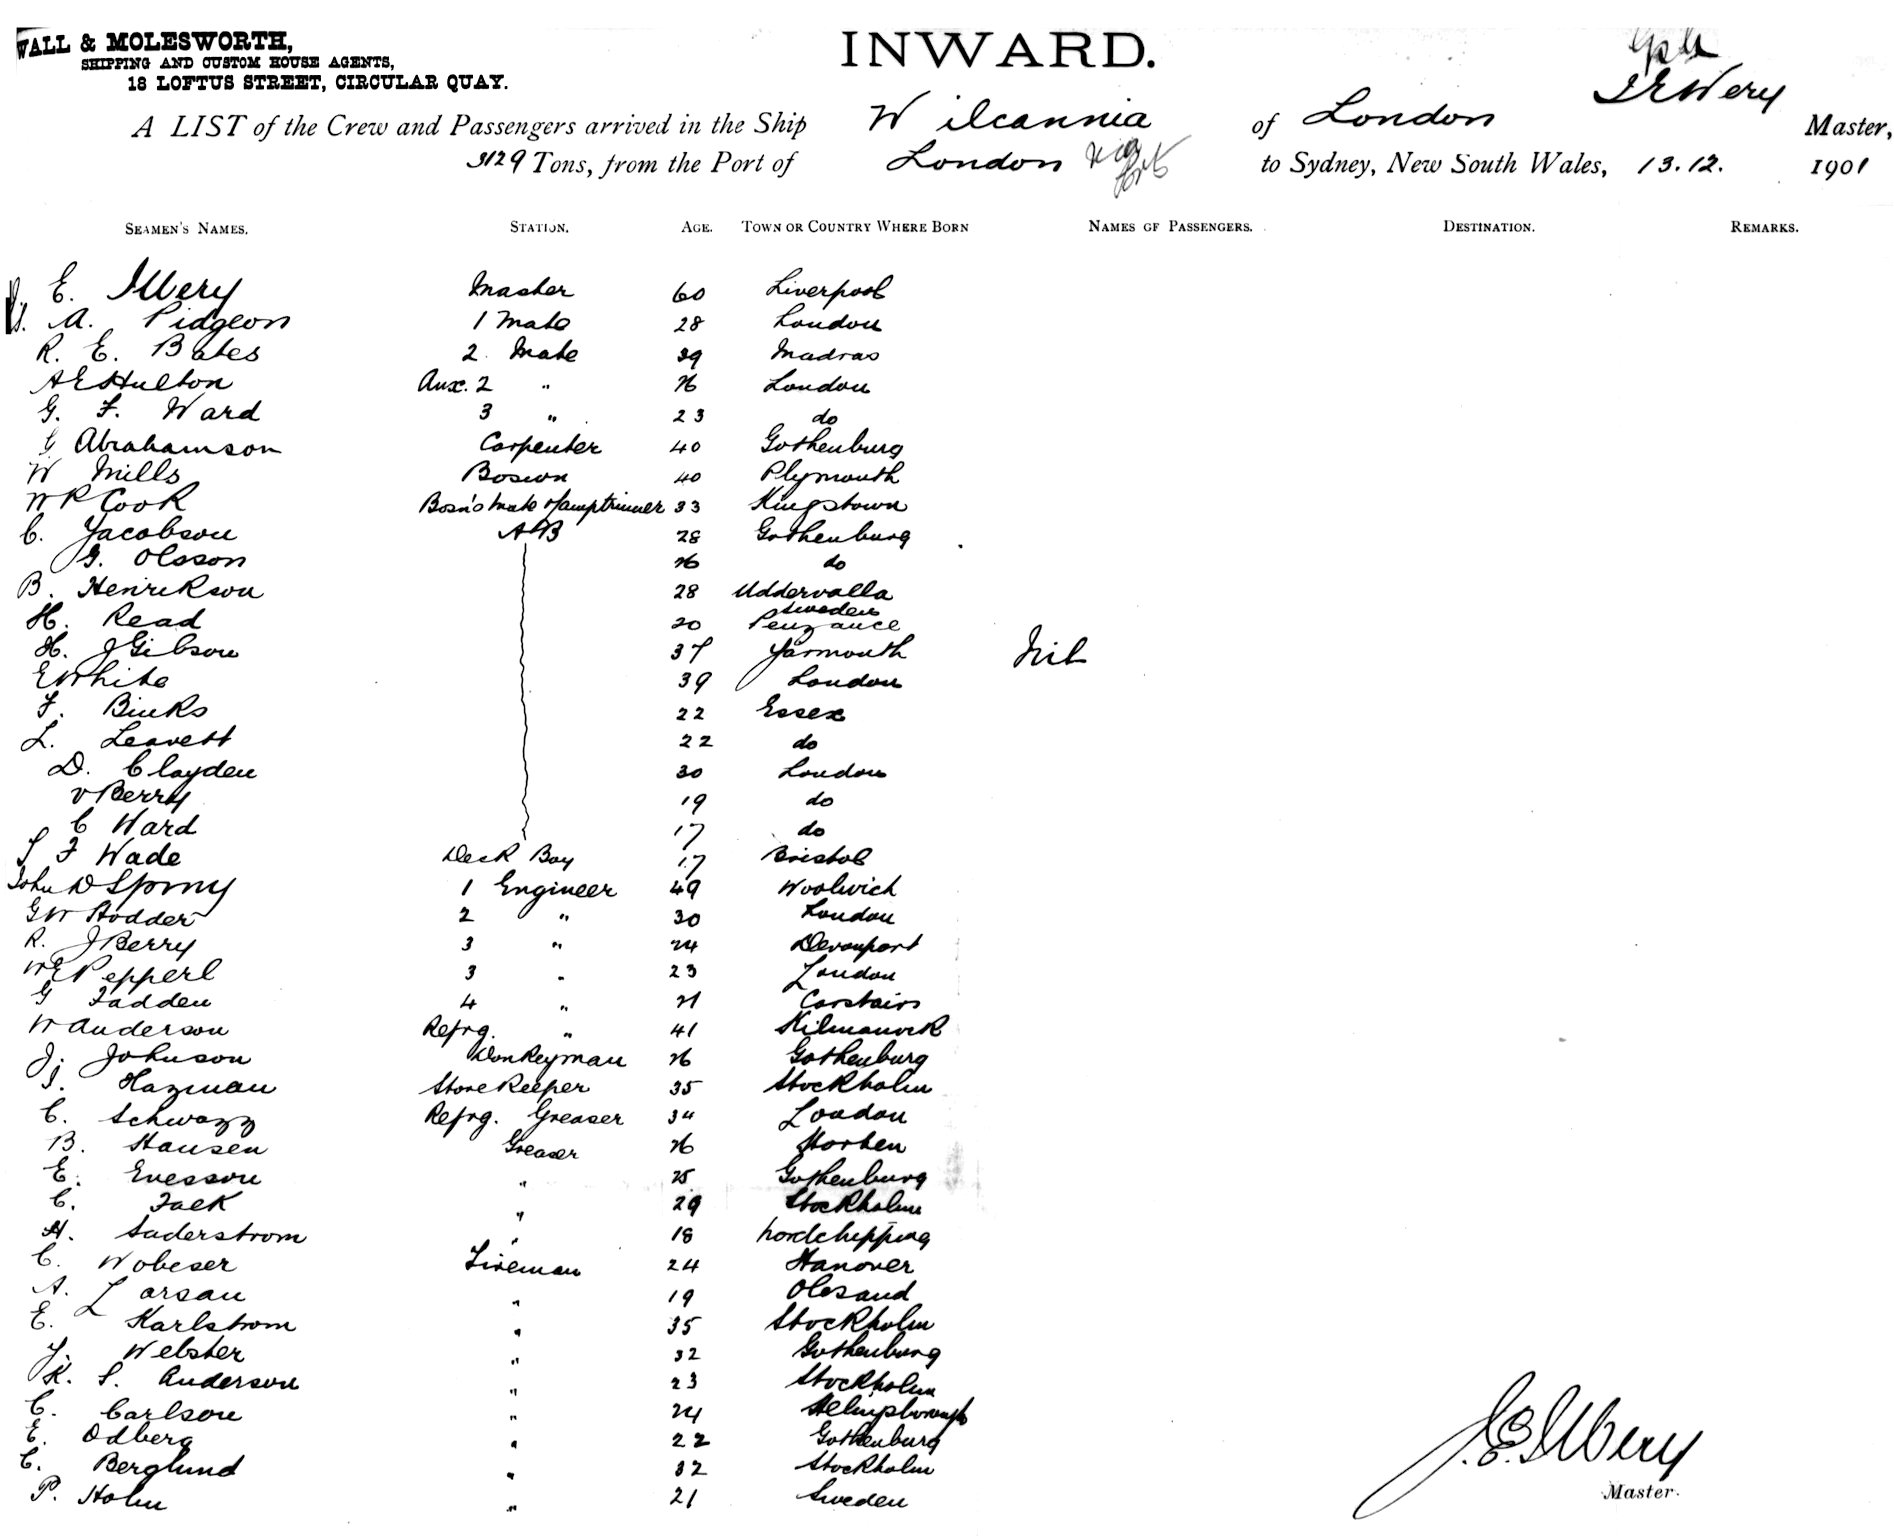 WALL & MOLESWORTH,
SHIPPING AND CUSTOM HOUSE AGENTS,
18 LOFTUS STREET, CIRCULAR QUAY.
INWARD.
A LIST of the Crew and Passengers arrived in the Ship Wilcannia of London Master,
3129 Tons, from the Port of London via to Sydney, New South Wales, 13.12. 1901
SEAMEN'S NAMES. STATION. AGE. TOWN OR COUNTRY WHERE BORN NAMES OF PASSENGERS. DESTINATION. REMARKS.
E. Ilbery Master 60 Liverpool
A. Pidgeon 1 Mate 28 London
R. E. Bates 2. Mate 39 Madras
A E Hulton Aux. 2 " 26 London
G. F. Ward 3 " 23 do
Abrahamson Carpenter 40 Gothenburg
W Mills Boswn 40 Plymouth
W R Cook Bosn's Mate & Lamptrimmer 33 Kingstown
C. Jacobson AB 28 Gothenburg
G. Olsson 26 do
B. Henrikson 28 Uddervalla Sweden
H. Read 20 Penzance
H. J Gibson 37 Yarmouth Nil
E White 39 London
F. Binks 22 Essex
L. Leavett 22 do
D. Clayden 30 London
V Berry 19 do
C Ward 17 do
S F Wade Deck Boy 17 Bristol
John D Sporny 1 Engineer 49 Woolwich
G W Hodder 2 " 30 London
R. J Berry 3 " 24 Devonport
W E Pepperl 3 " 23 London
G Fadden 4 " 21 Carstairs
W Anderson Refrg. " 41 Kilmanock
J. Johnson Donkeyman 26 Gothenburg
Hazman Storekeeper 35 Stockholm
C. Schwazz Refrg. Greaser 34 London
B. Hansen Greaser 26 Horten
E. Evesson " 25 Gothenburg
C. Falk " 29 Stockholm
H. Suderstrom " 18 Nordchipping
C. Wobeser Fireman 24 Hanover
A. Larsan " 19 Olesand
E. Karlstrom " 35 Stockholm
J. Webster " 32 Gothenburg
K. S. Anderson " 23 Stockholm
C. Carlson " 24
E. Odberg " 22 Gothenburg
C. Berglund " 32 Stockholm
P. Holm " 21 Sweden
J. E. Ilbery
Master.